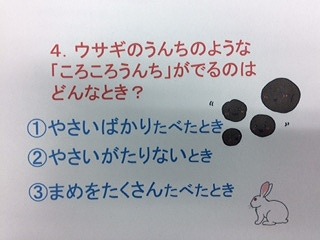 4．ウサギのうんちのような
「ころころうんち」がでるのは
どんなとき？
①やさいばかりたべたとき
②やさいがたりないとき
③まめをたくさんたべたとき